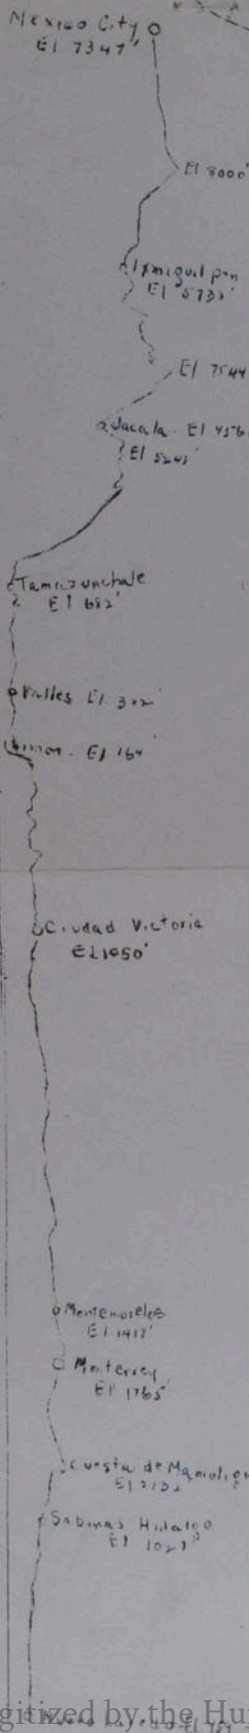 Mexico City
El 7347'
El 8000'
Ixmiquilpan
El 573
El 7544
Jacala - El 456
El 5245'
Tamazunchale
El 682'
Valles El 302
Limon - El 164'
Ciudad Victoria
El 1050'
Montemorelos
El 1417'
Monterrey
El 1765'
Cuesta de Mamuliqu
El 2132
Sabinas Hidalgo
El 1027'
gitized by the Hu